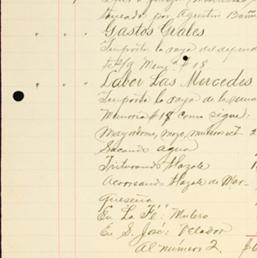 Saneado por Agustín
Gastos Grales
Importó la raya del depend
# 18
Labor Las Mercedes
Importó la raya de la sema
Memoria #18 como sigue:
Mayordomo, mozo,
Sacando agua
Triturando tlazole
Acarreando tlazole de Mar-
queseña
En La Fé: Mulero
En S. José: Velador
Al número 2